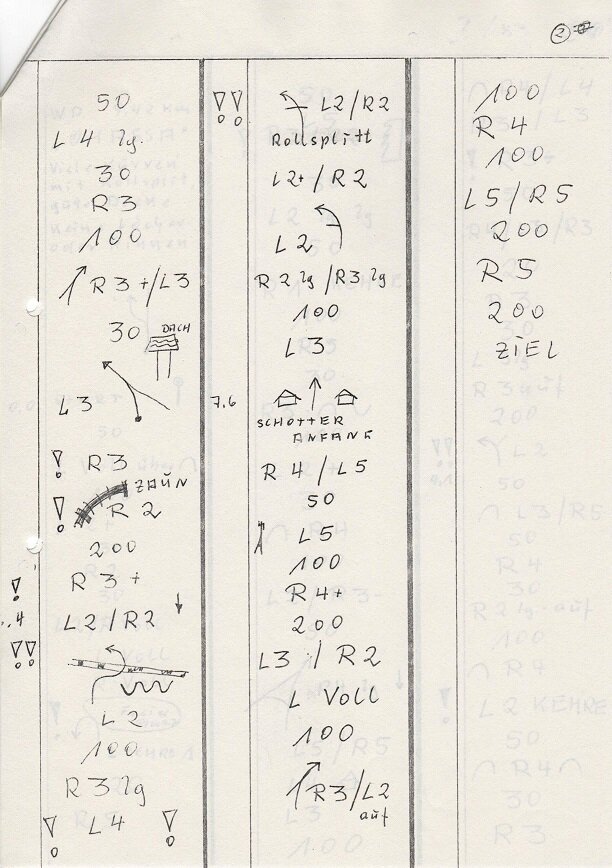 2
50
L4 lg.
30
R3
100
R3+/L3
30 DACH
L3
! R3
ZAUN
! R2
200
! R3+
L2/R2
!!
L2
100
R3 lg
! L4 !
!! L2/R2
Rollsplitt
L2+/R2
L2
R2 lg/R3 lg
100
L3
7.6
SCHOTTER
ANFANG
R4/L5
50
L5
100
R4+
200
L3/R2
L VOLL
100
R3/L2
auf
100
R4
100
L5/R5
200
R5
200
ZIEL